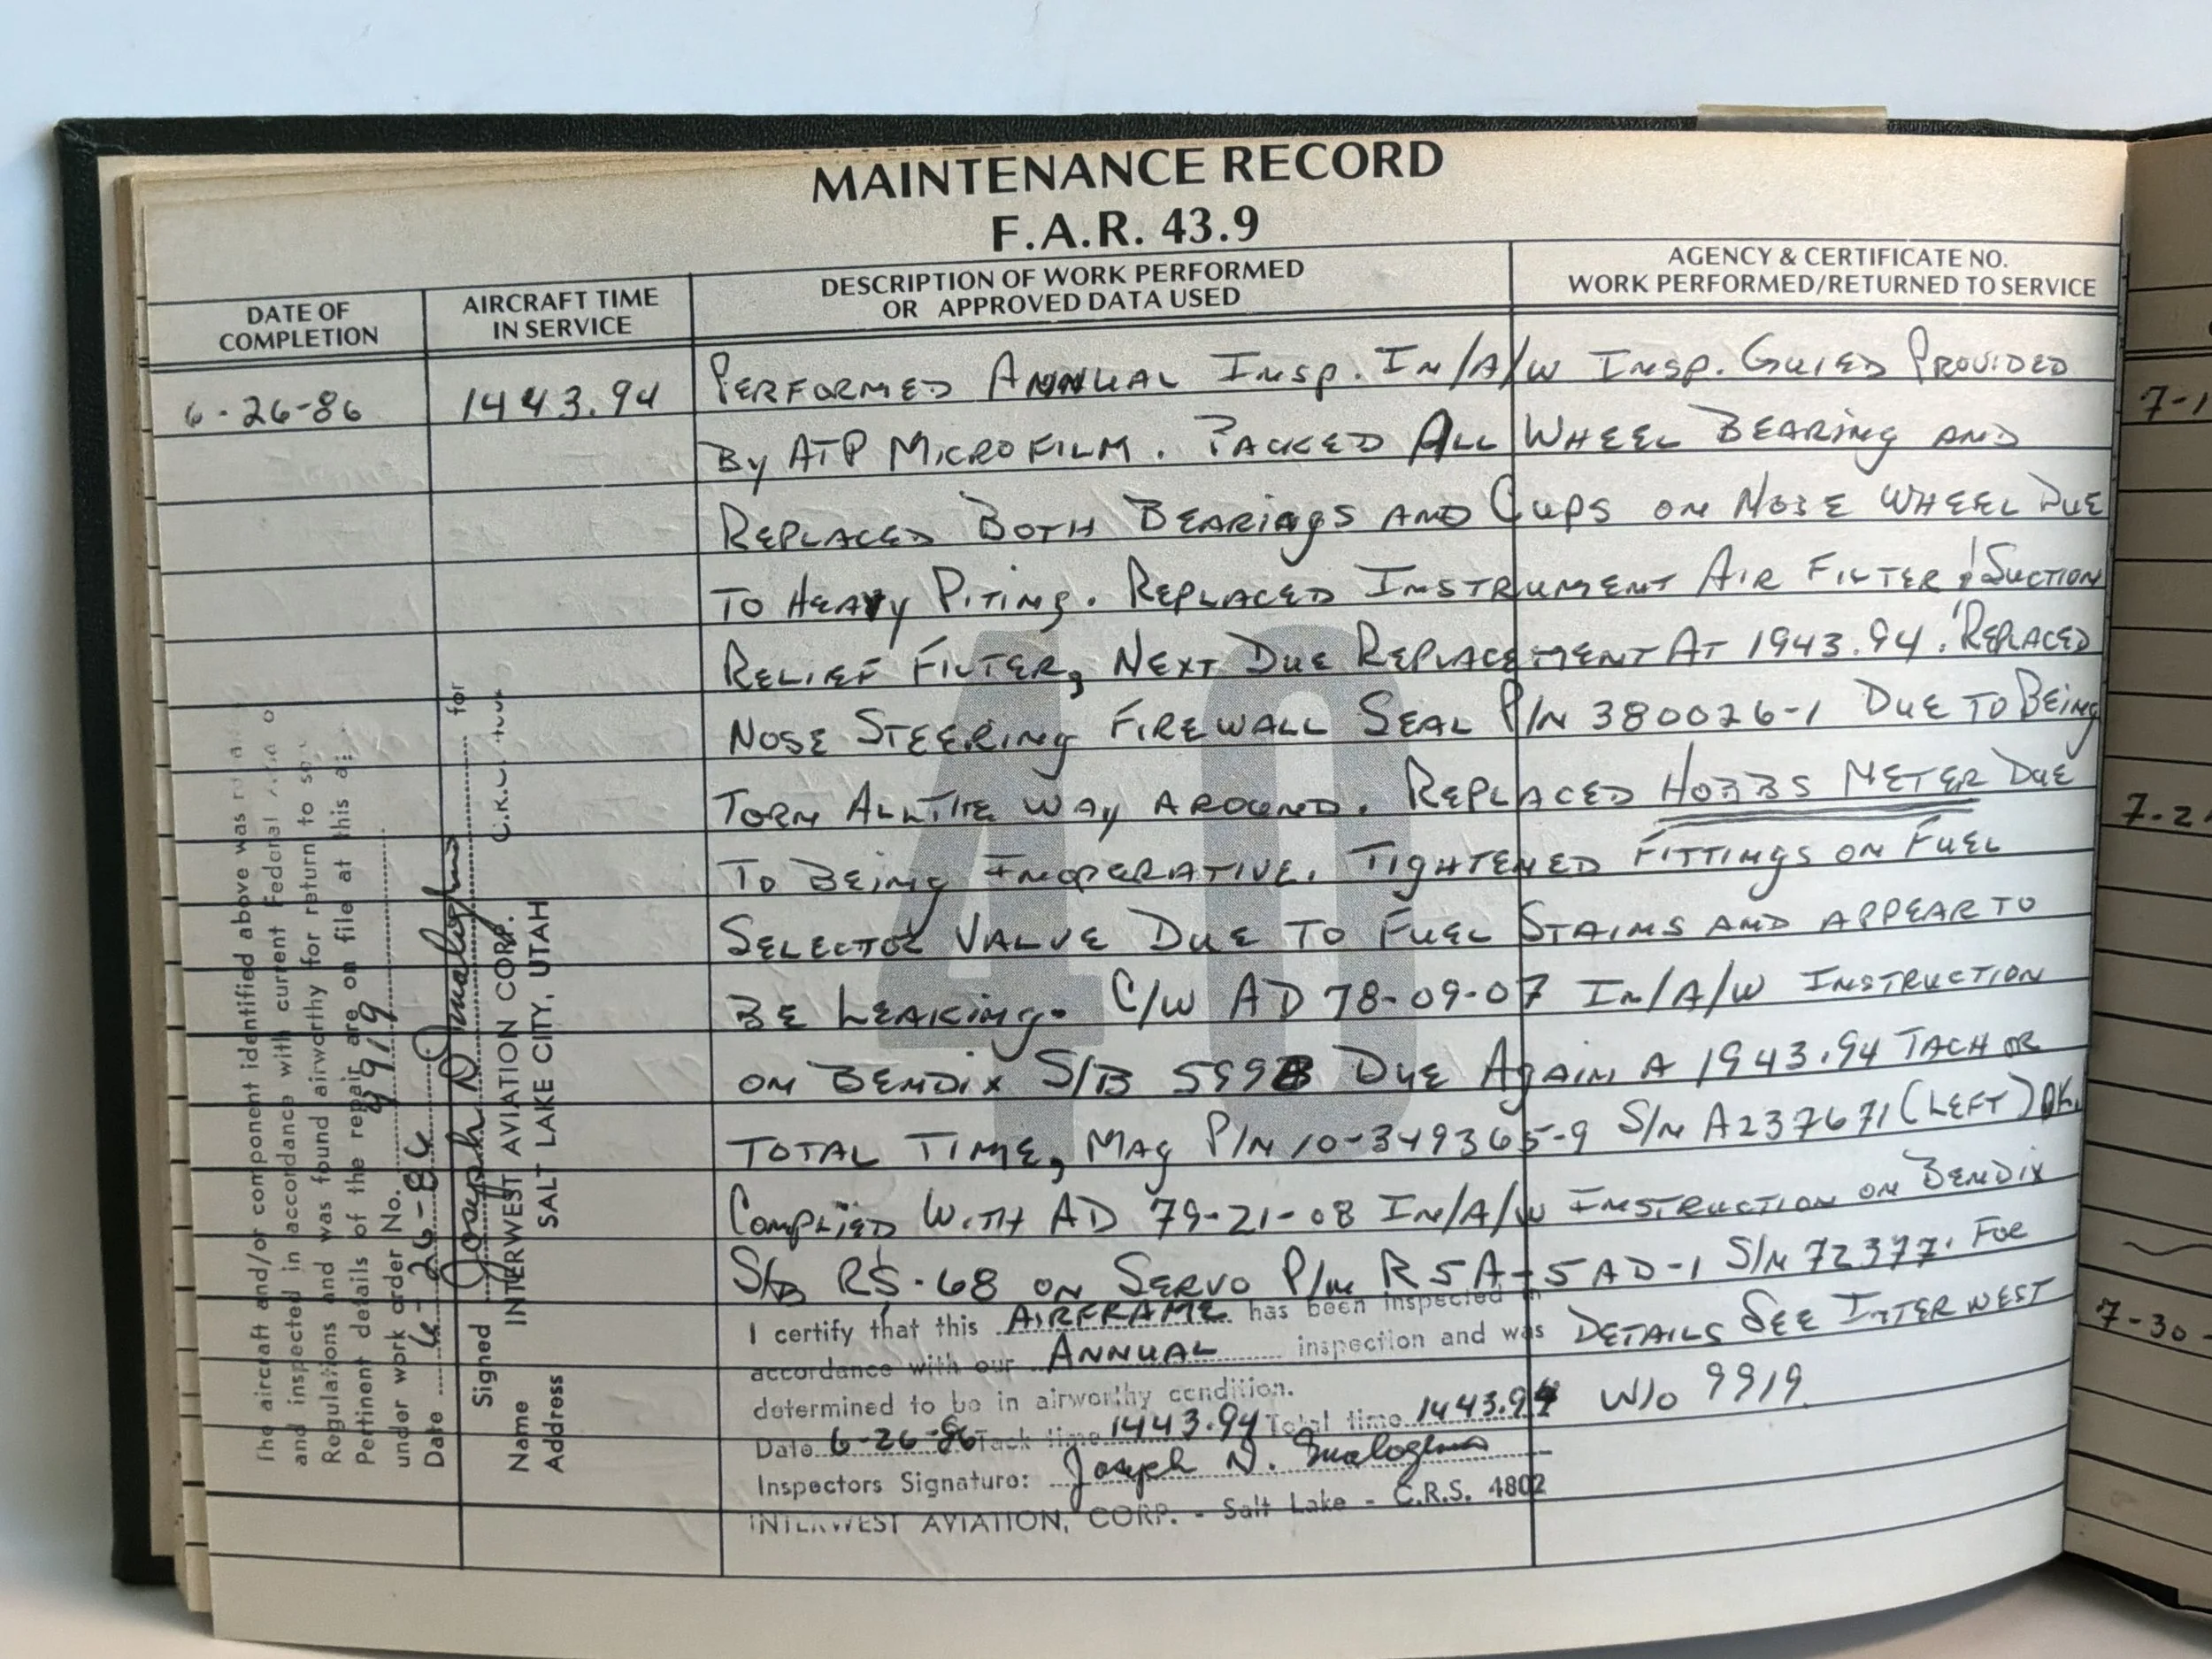 MAINTENANCE RECORD
F.A.R. 43.9
DATE OF
COMPLETION
AIRCRAFT TIME
IN SERVICE
DESCRIPTION OF WORK PERFORMED
OR APPROVED DATA USED
AGENCY & CERTIFICATE NO.
WORK PERFORMED/RETURNED TO SERVICE
6-26-86 1443.94 PERFORMED ANNUAL INSP. IN/A/W INSP. GUIED PROVIDED
BY ATP MICROFILM. PACKED ALL WHEEL BEARING AND
REPLACED BOTH BEARINGS AND CUPS ON NOSE WHEEL DUE
TO HEAVY PITING. REPLACED INSTRUMENT AIR FILTER & SUCTION
RELIEF FILTER, NEXT DUE REPLACEMENT AT 1943.94. REPLACED
NOSE STEERING FIREWALL SEAL P/N 380026-1 DUE TO BEING
TORN ALL THE WAY AROUND. REPLACED HOBBS METER DUE
TO BEING INOPERATIVE. TIGHTENED FITTINGS ON FUEL
SELECTOR VALVE DUE TO FUEL STAINS AND APPEAR TO
BE LEAKING. C/W AD 78-09-07 IN/A/W INSTRUCTION
ON BENDIX S/B 599B DUE AGAIN A 1943.94 TACH OR
TOTAL TIME, MAG P/N 10-349365-9 S/N A237671 (LEFT) OK.
COMPLIED WITH AD 79-21-08 IN/A/W INSTRUCTION ON BENDIX
S/B RS-68 ON SERVO P/N RSA-5AD-1 S/N 72377. FOR
DETAILS SEE INTERWEST
W/O 9919
I certify that this AIRFRAME has been inspected in
accordance with our ANNUAL inspection and was
determined to be in airworthy condition.
Date 6-26-86 Tack time 1443.94 Total time 1443.94
Inspectors Signature: Joseph D.
INTERWEST AVIATION, CORP. - Salt Lake - C.R.S. 4802
The aircraft and/or component identified above was
and inspected in accordance with current Federal
Regulations and was found airworthy for return to
Pertinent details of the repair are on file at this
under work order No. 9919
Date 6-26-86
Signed Joseph D. for
Name INTERWEST AVIATION CORP.
Address SALT LAKE CITY, UTAH
7-1
7-2
7-30-